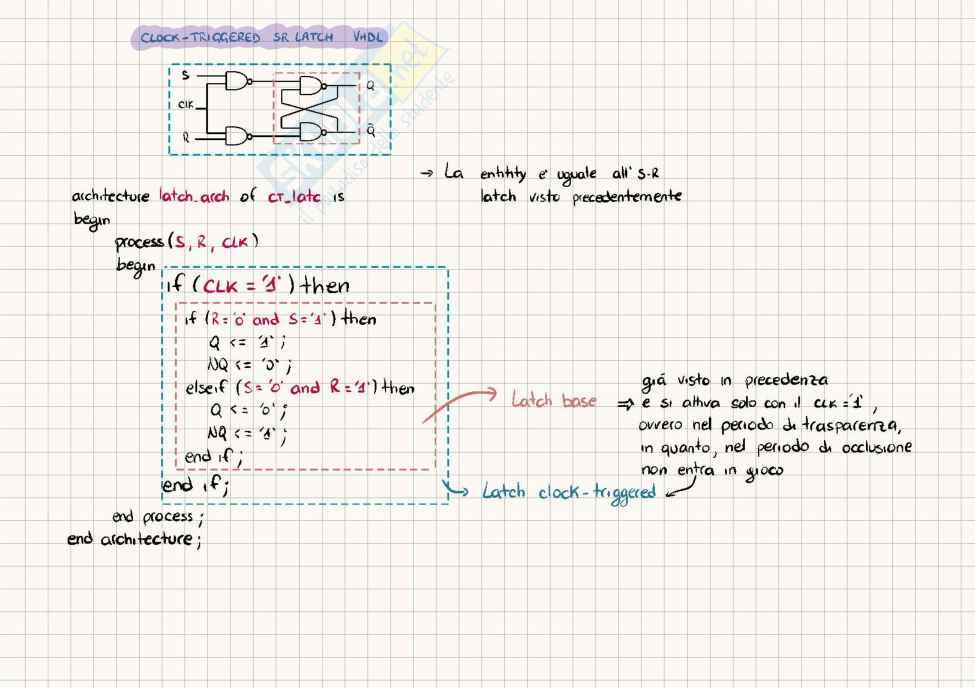 CLOCK-TRIGGERED SR LATCH VHDL
S
CLK
R
Q
Q̄
→ La entity e' uguale all' S-R
latch visto precedentemente
architecture latch_arch of CT_latc is
begin
process (S, R, CLK)
begin
if (CLK = '1') then
if (R = '0' and S = '1') then
Q <= '1';
NQ <= '0';
elseif (S = '0' and R = '1') then
Q <= '0';
NQ <= '1';
end if;
end if;
end process;
end architecture;
Latch base ⇒
già visto in precedenza
e si attiva solo con il CLK = '1',
ovvero nel periodo di trasparenza,
in quanto, nel periodo di occlusione
non entra in gioco
Latch clock-triggered